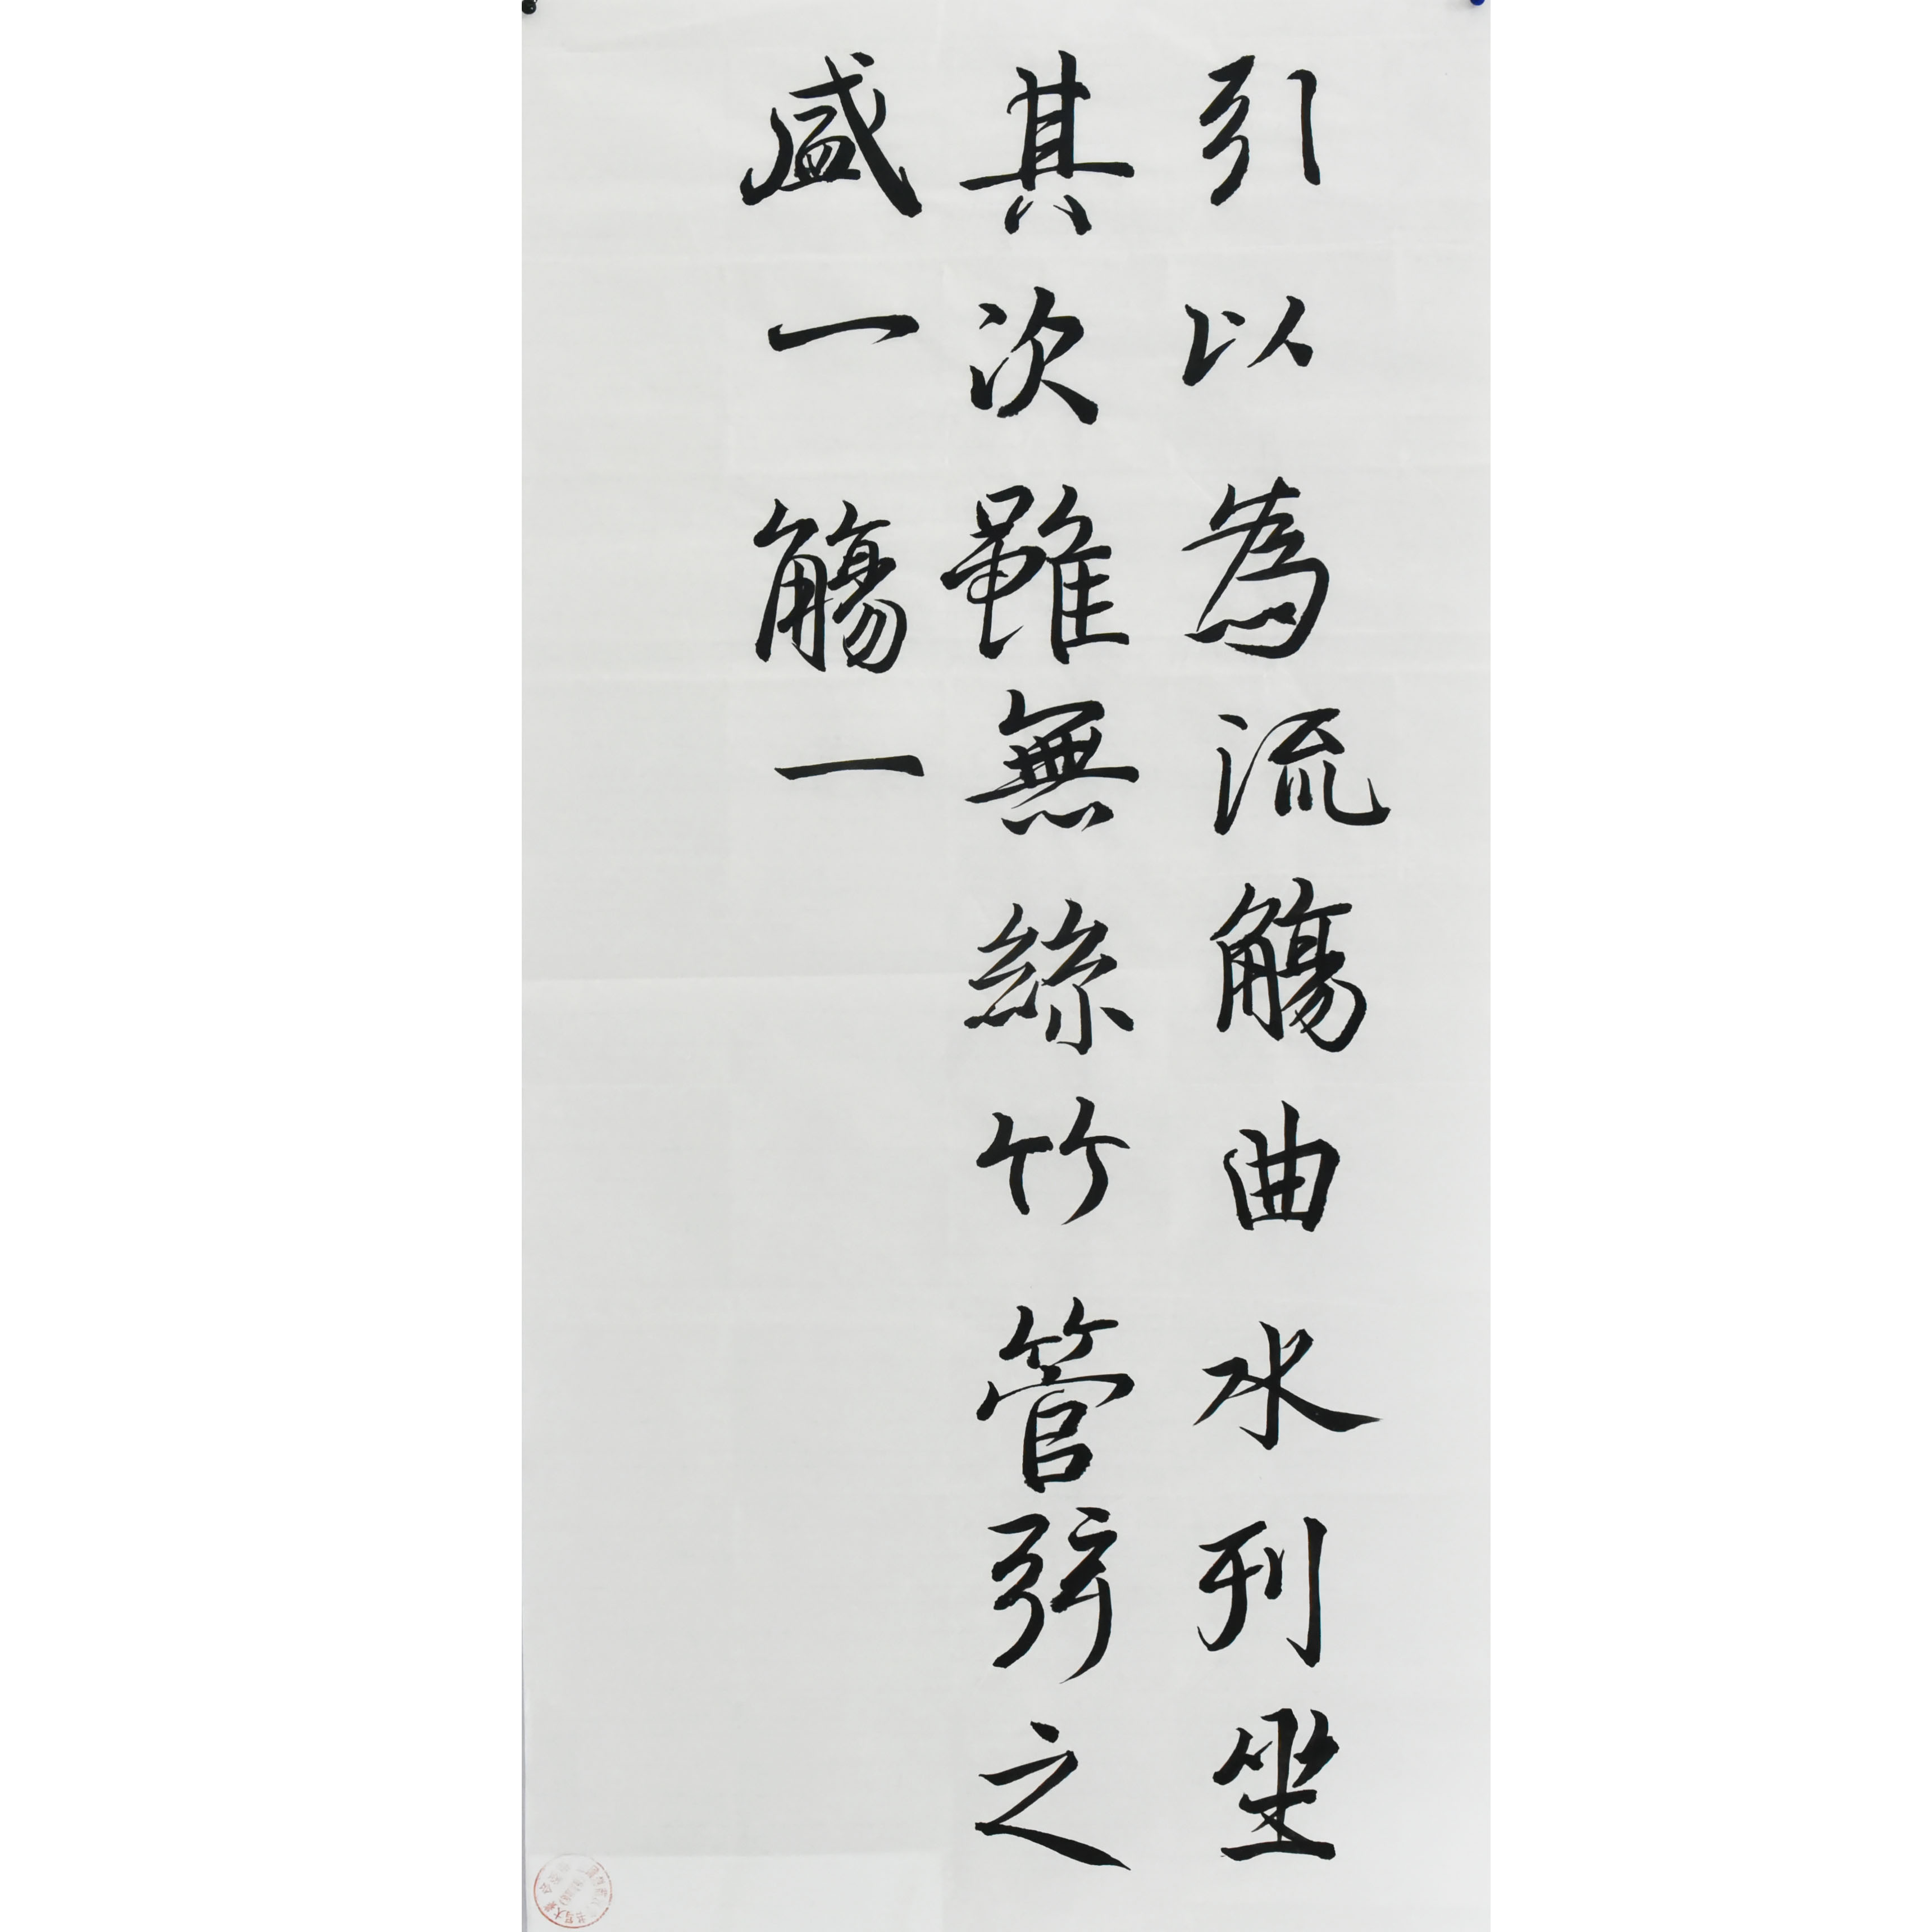 引以為流觴曲水列坐
其次雖無絲竹管弦之
盛一觴一